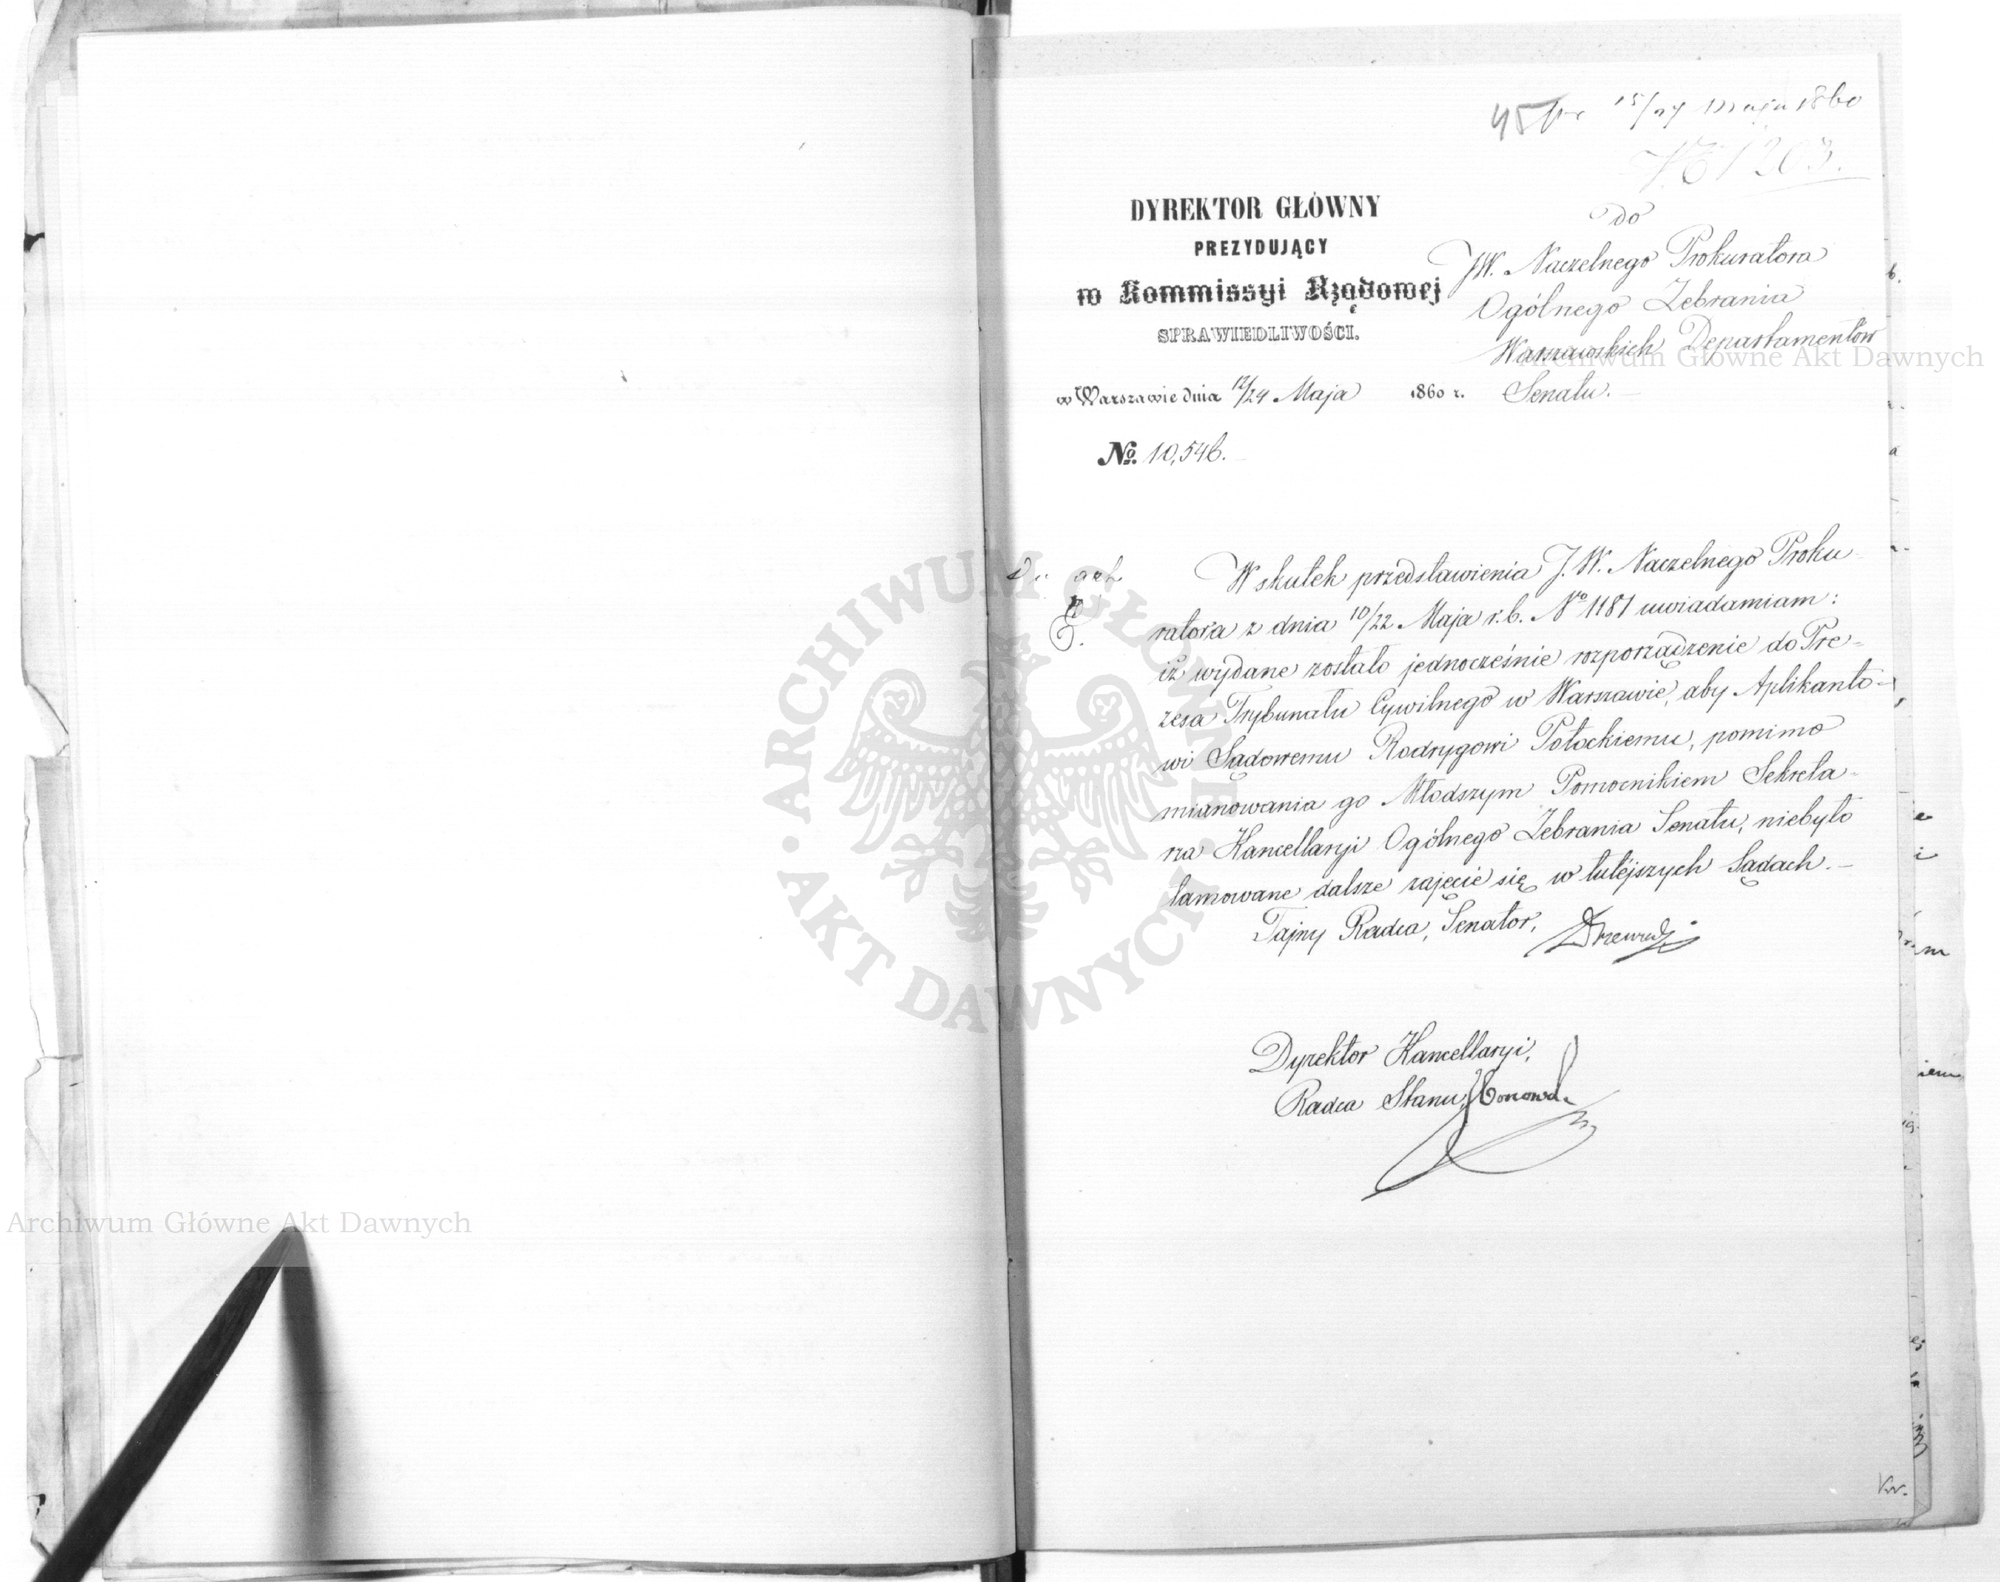 45 pr 15/27 maja 1860
№ 1203.
DYREKTOR GŁÓWNY
PREZYDUJĄCY
w Kommissyi Rządowej
SPRAWIEDLIWOŚCI.
w Warszawie dnia 12/24 Maja 1860 r.
No. 10,546.
Do
JW. Naczelnego Prokuratora
Ogólnego Zebrania
Warszawskich Departamentów
Senatu. —
akt
W skutek przedstawienia J. W. Naczelnego Proku-
ratora z dnia 10/22 Maja r. b. No 1181 uwiadamiam:
iż wydane zostało jednocześnie rozporządzenie do Pre-
zesa Trybunału Cywilnego w Warszawie, aby Aplikanto-
wi Sądowemu Rodrygowi Potockiemu, pomimo
mianowania go Młodszym Pomocnikiem Sekreta-
rza Kancellaryi Ogólnego Zebrania Senatu, niebyło
tamowane dalsze zajęcie się w tutéjszych Sądach. —
Tajny Radca, Senator,
Dyrektor Kancellaryi,
Radca Stanu,
Kw.
ARCHIWUM GŁÓWNE AKT DAWNYCH
Archiwum Główne Akt Dawnych
Archiwum Główne Akt Dawnych